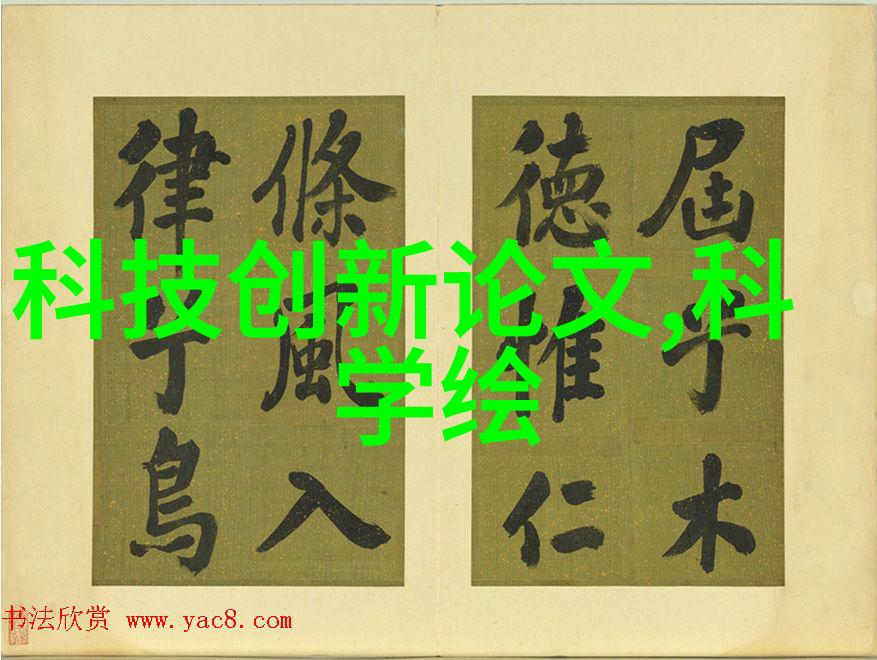 科技创新论文,科
学绘
屆乎木
德惟仁
條風入
律鳥
书法欣赏 www.yac8.com